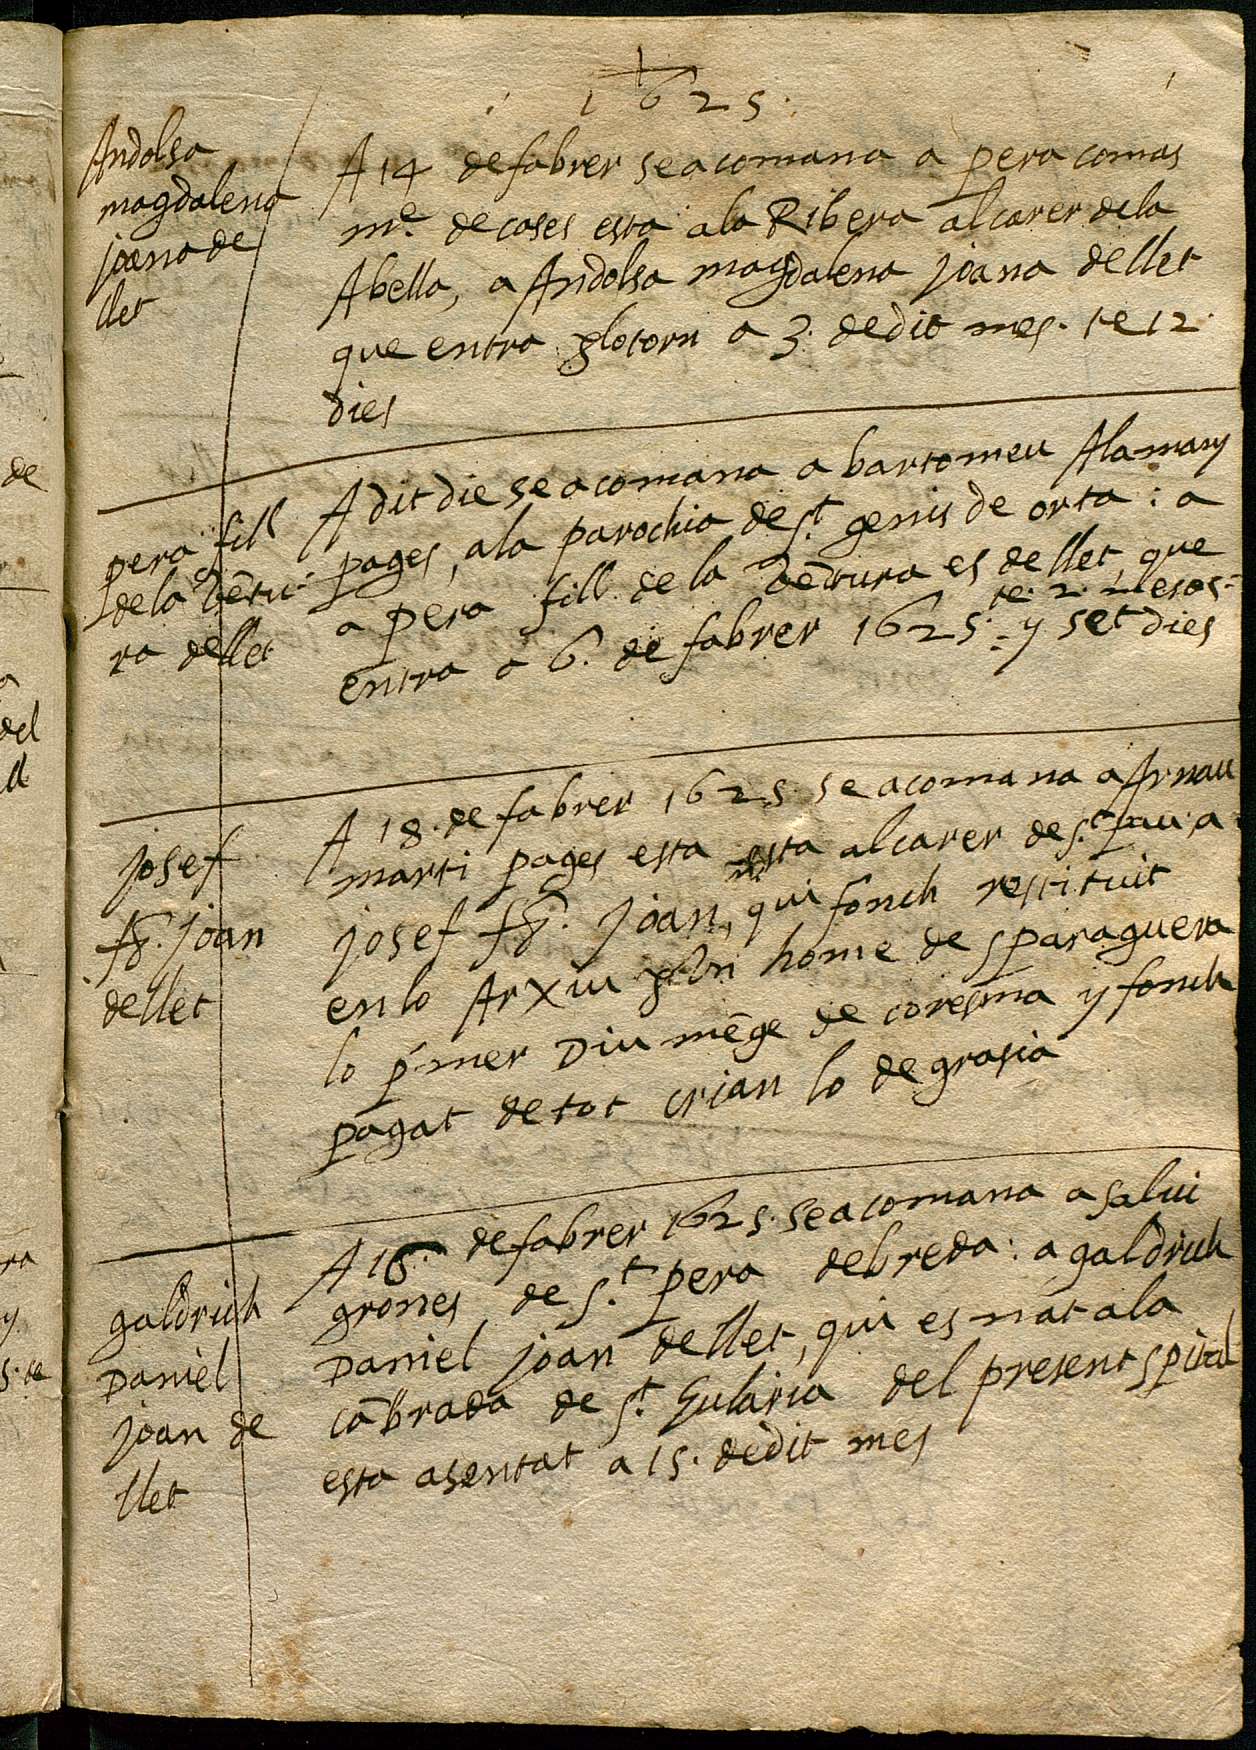 1625.
Andolsa
magdalena
joana de
llet
A 14 de fabrer se acomana a pera comas
me. de cases esta a la Ribera al carer de la
Abella, a Andolsa magdalena joana de llet
que entra p lo torn a 3. de dit mes. te 12.
dies
pera fill
de la Vētu-
ra de llet
A dit die se acomana a bartomeu Alamany
pages, a la parochia de st. genis de orta : a
a pera fill de la Vētura es de llet, que
te. 2. mesos-
entra a 6. de fabrer 1625. y set dies
josef
fr. joan
de llet
A 18. de fabrer 1625. se acomana a Arnau
marti pages esta esta al carer de st. pau. a
josef fr. joan, qui fonch restituit
en lo Arxiu p Vn home de sparaguera
lo p.mer Diumēge de coresma y fonch
pagat de tot crian lo de grasia
galdrich
Daniel
joan de
llet
A 16. de fabrer 1625. se acomana a salui
grones de st. pera de breda : a galdrich
Daniel joan de llet, qui es nat a la
cābrada de st. Eularia del present spital
esta asentat a 15. de dit mes
de